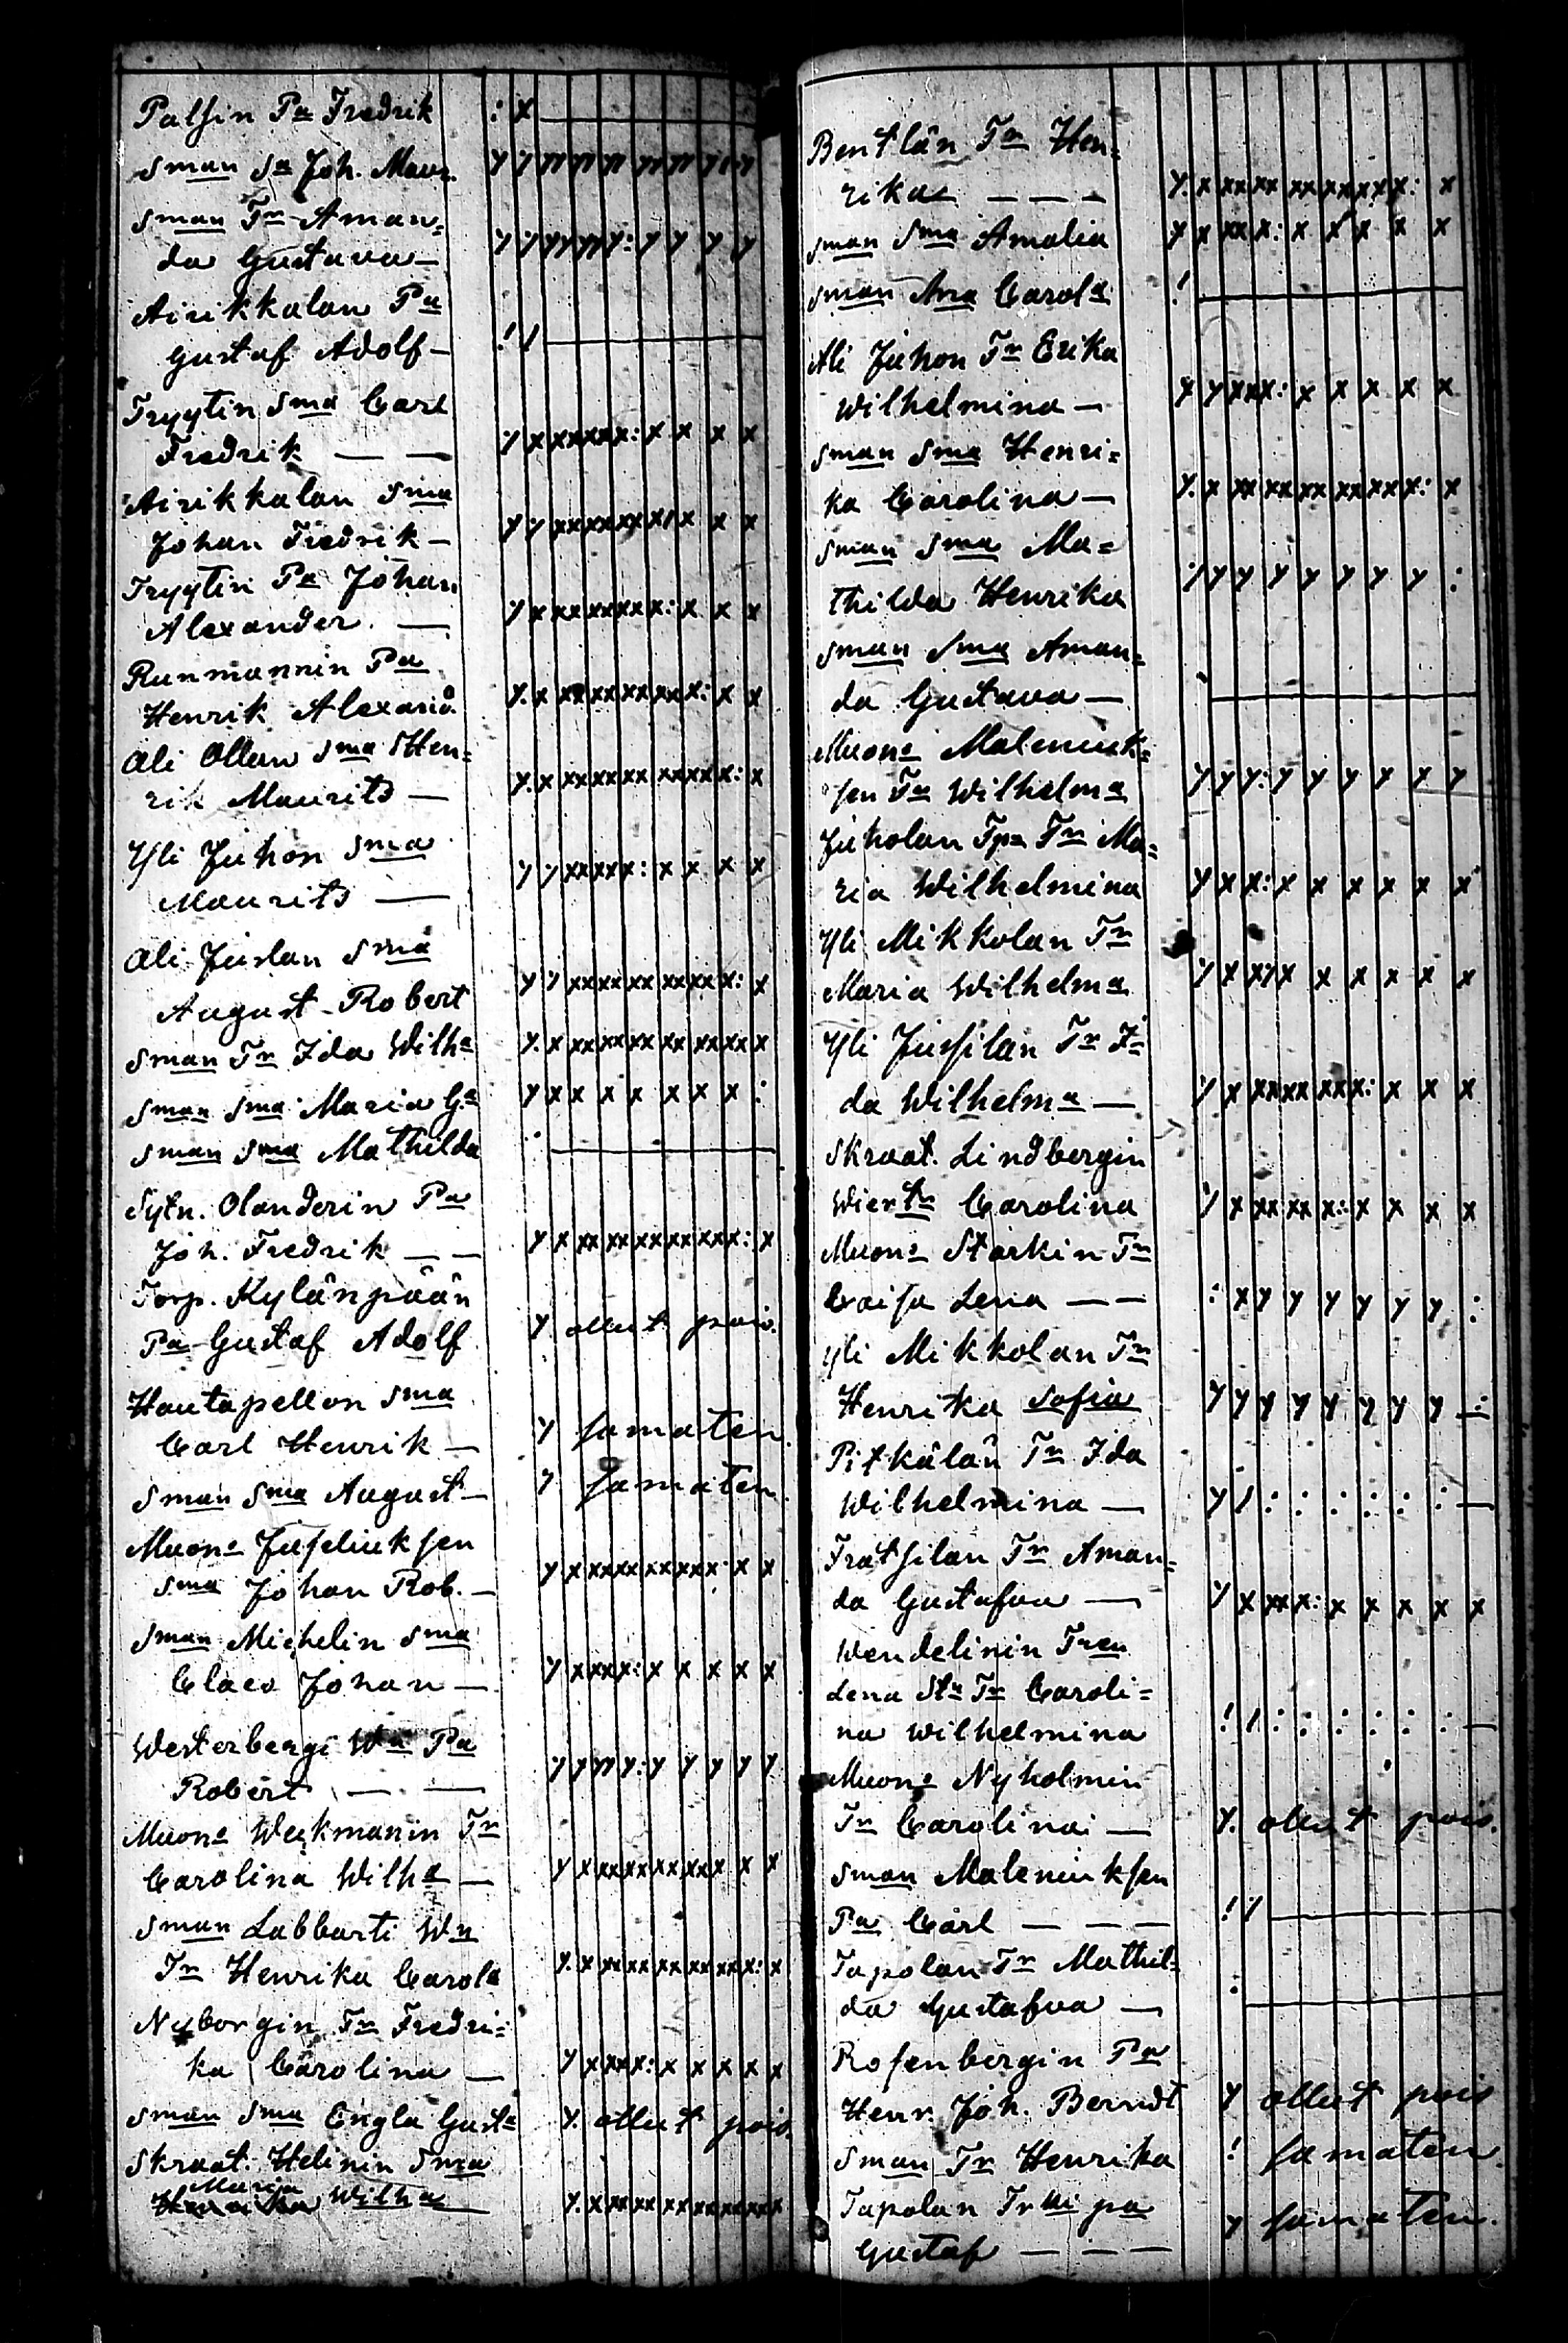 Palsin Pa Fredrik : x
Sman Sa Joh. Maur. y y n n n n n y n y
Sman Tr Aman=
da Gustava — y y y y y y y : y y y y
Airikkalan Pa
Gustaf Adolf — ! /
Tryytin Sma Carl
Fredrik — — y x x x x x x : x x x x
Airikkalan Sma
Johan Fredrik — y y x x x x x x x / x x x
Tryytin Pa Johan
Alexander — y x x x x x x x x : x x x
Runmannin Pa
Henrik Alexand. y. x x x x x x x x x : x x
Ali Ollan Sma Hen=
rik Maurits — y. x x x x x x x x x x x : x
Yli Juhon Sma
Maurits — y y x x x x x : x x x x
Ali Juslan Sma
August Robert y y x x x x x x x x x : x
Sman Tr Ida Wilha y. x x x x x x x x x x x x x
Sman Sma Maria Ga y x x x x x x x :
Sman Sma Mathilda
Sytn. Olanderin Pa
Joh. Fredrik — — y x x x x x x x x x x x : x
Torp. Kylänpään
Pa Gustaf Adolf y ollut pois.
Hautapellon Sma
Carl Henrik — y samaten
Sman Sma August — y samaten
Muona Juseliuksen
Sma Johan Rob. — y x x x x x x x x x : x x
Sman Michelin Sma
Claes Johan — y x x x x : x x x x x
Westerbergi Wn Pa
Robert — — y y y y y : y y y y y
Muona Weckmanin Tr
Carolina Wilha — y x x x x x x x x x x x
Sman Labbarti Wn
Tr Henrika Carola y. x x x x x x x x x x x : x
Nyborgin Tr Fredri=
ka Carolina — y x x x x : x x x x x
Sman Sma Engla Gusta y. ollut pois.
Skraat. Helinin Sma
Maria Wilha y. x x x x x x x x x x x x
Bentlän Tr Hen=
rika — — — y. x x x x x x x x x x x : x
Sman Sma Amalia y x x x x : x x x x x
Sman Sma Carola !
Ali Juhon Tr Erika
Wilhelmina — y y x x x : x x x x x
Sman Sma Henri=
ka Carolina — y. x x x x x x x x x x x : x
Sman Sma Ma=
thilda Henrika y y y y y y y y :
Sman Sma Aman=
da Gustava —
Muona Maleniuk=
sen Tr Wilhelma y y y : y y y y x y
Juholan Tpa Tr Ma=
ria Wilhelmina y x x : x x x x x x
Yli Mikkolan Tr
Maria Wilhelma y x x y x x x x x x
Yli Jussilan Tr I=
da Wilhelma — y x x x x x x x x : x x x
Skraat. Lindbergin
Wiertr Carolina y x x x x x x : x x x x
Muona Starkin Tr
Caisa Lena — — : x y y y y y y :
Yli Mikkolan Tr
Henrika Sofia y y y y y y y y :
Pitkälän Tr Ida
Wilhelmina — y / : : : : : : —
Tratsilan Tr Aman=
da Gustafva — y x x x x : x x x x x
Wendelinin Tren
Lena Sta Tr Caroli=
na Wilhelmina ! / : : : : : : —
Muona Nyholmin
Tr Carolina — y. ollut pois.
Sman Maleniuksen
Pa Carl — — — ! /
Tapolan Tr Mathil=
da Gustafva — :
Rosenbergin Pa
Henr. Joh. Berndt y ollut pois
Sman Tr Henrika ! samaten
Tapolan Pa
Gustaf — — — y samaten.